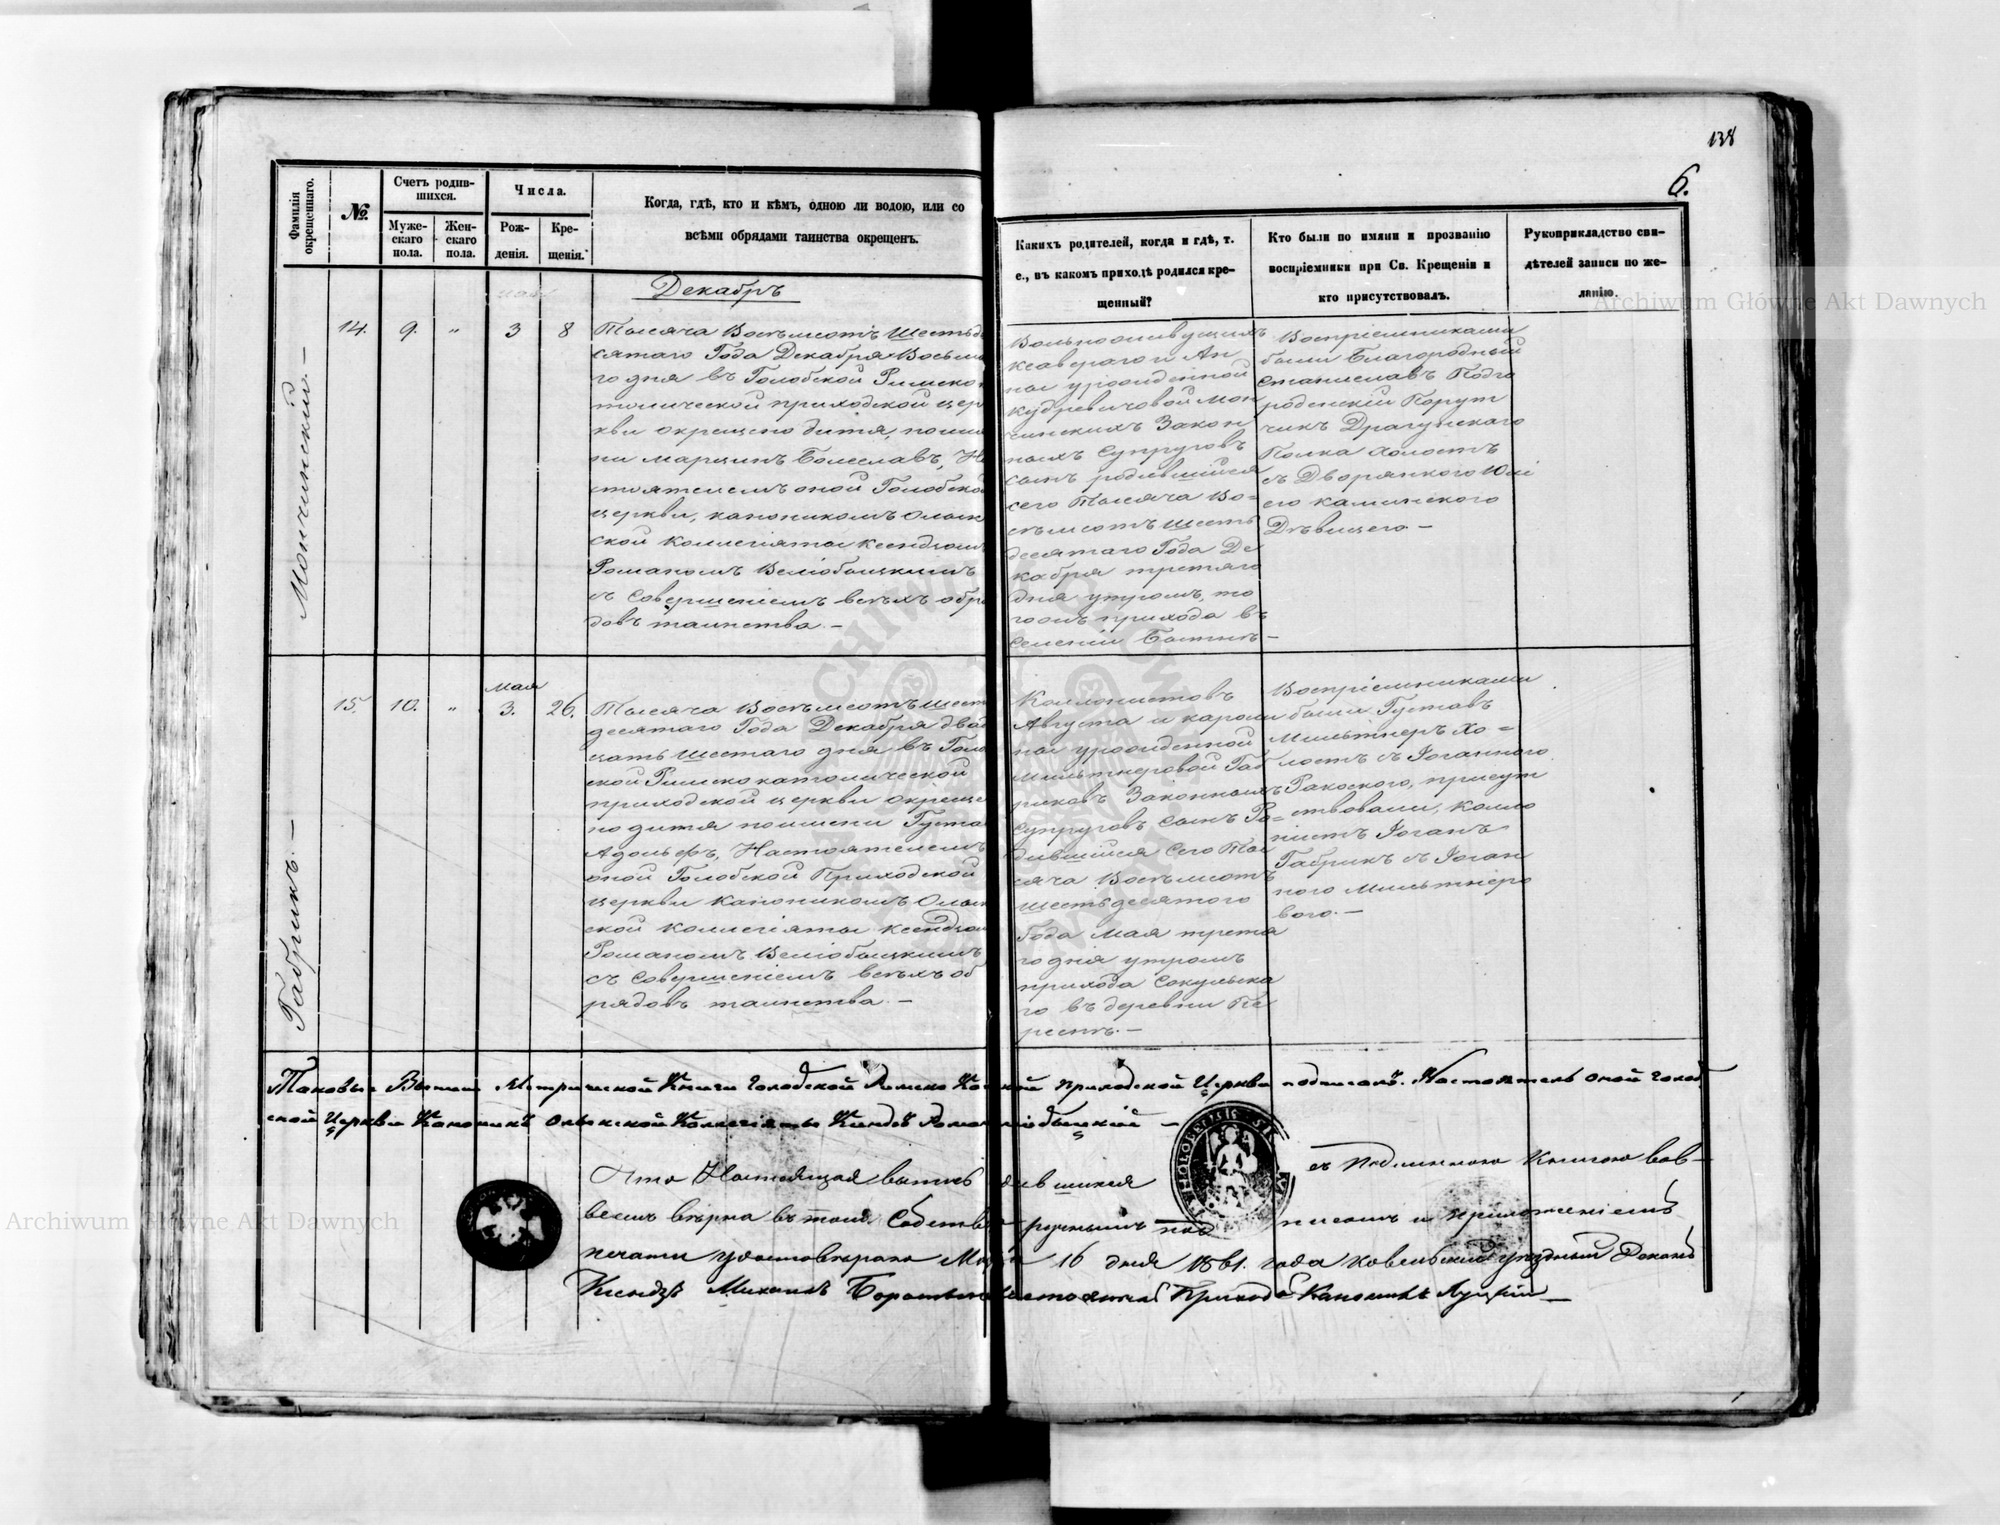 138
6.
Фамилія окрещеннаго.
№.
Счетъ родив-
шихся.
Муже-
скаго
пола.
Жен-
скаго
пола.
Числа.
Рож-
денія.
Кре-
щенія.
Когда, гдѣ, кто и кѣмъ, одною ли водою, или со
всѣми обрядами таинства окрещенъ.
Каких родителей, когда и гдѣ, т.
е., въ какомъ приходѣ родился кре-
щенный?
Кто были по имяни и прозванію
воспріемники при Св. Крещеніи и
кто присутствовалъ.
Рукоприкладство сви-
дѣтелей записи по же-
ланію.
Декабрь
Мончинский. —
14.
9.
"
3
8
Тысяча Восемьсотъ Шестьде
сятаго Года Декабря Восьма
го дня въ Голобской Римско
толической приходской цер
кви окрещено дитя, поиме
ни Марцинъ Болеславъ, На
стоятелемъ оной Голобской
церкви, каноникомъ Олыц
ской Коллегіяты Ксендзом
Романомъ Веліобыцкимъ
съ Совершеніемъ всѣхъ обря
довъ таинства. —
Вольноживущихъ
Ксаверого и Ан
ны урожденной
Кудревичовой Мон
чинскихъ Закон
ныхъ Супруговъ
сынъ родившійся
сего Тысяча Во=
семьсотъ Шесть
десятаго Года Де
кабря третяго
дня утромъ, то
гожъ прихода въ
Селеніи
Воспріемниками
были Благородный
Станиславъ Подго
роденскій Порут
чикъ Драгунскаго
Полка Холостъ
съ Дворянкого Юлі
его Каминского
Дѣвицего —
Габрикъ. —
15.
10.
"
Мая
3.
26.
Тысяча Восемьсотъ Шест
десятаго Года Декабря двад
цать Шестаго дня въ Голо
ской Римско католической
приходской церкви окреще
но дитя поимени Густа
Адольфъ, Настоятелемъ
оной Голобской Приходской
церкви Каноникомъ Олыц
ской Коллегіяты Ксендзом
Романомъ Веліобыцкимъ
съ Совершеніемъ всѣхъ об
рядовъ таинства. —
Коллонистовъ
Августа и Кароли
ны урожденной
Мильтнеровой Габ
риковъ Законныхъ
Супруговъ Сынъ Ро=
дившійся Сего Ты
сяча Восемьсотъ
Шестьдесятого
Года Мая третя
го дня утромъ
прихода Сокульска
го въ деревни Пе
Воспріемниками
были Густавъ
Мильтнеръ Хо=
лостъ съ Іоганного
Ракоского, присут
ствовали, Колло
нистъ Іоганъ
Габрикъ съ Іоган
ного Мильтнеро
вого. —
Таковы Выписи Метрической Книги Голобской Римско Ка кой приходской Церкви подписалъ. Настоятель оной Голоб
ской Церкви Каноникъ Олыкской Коллегіяты Ксендзъ Роман ліобыцкій —
Что Настоящая выпись съ Подлинною Книгою во всемъ вѣрна въ томъ Собственноручнымъ подписомъ и приложеніемъ
печати удостовѣряю Марта 16 дня 1861. года Ковельскій уѣздный Деканъ
Ксендзъ Михаилъ Настоятель Прихода Каноникъ Луцкій —
Archiwum Główne Akt Dawnych
Archiwum Główne Akt Dawnych